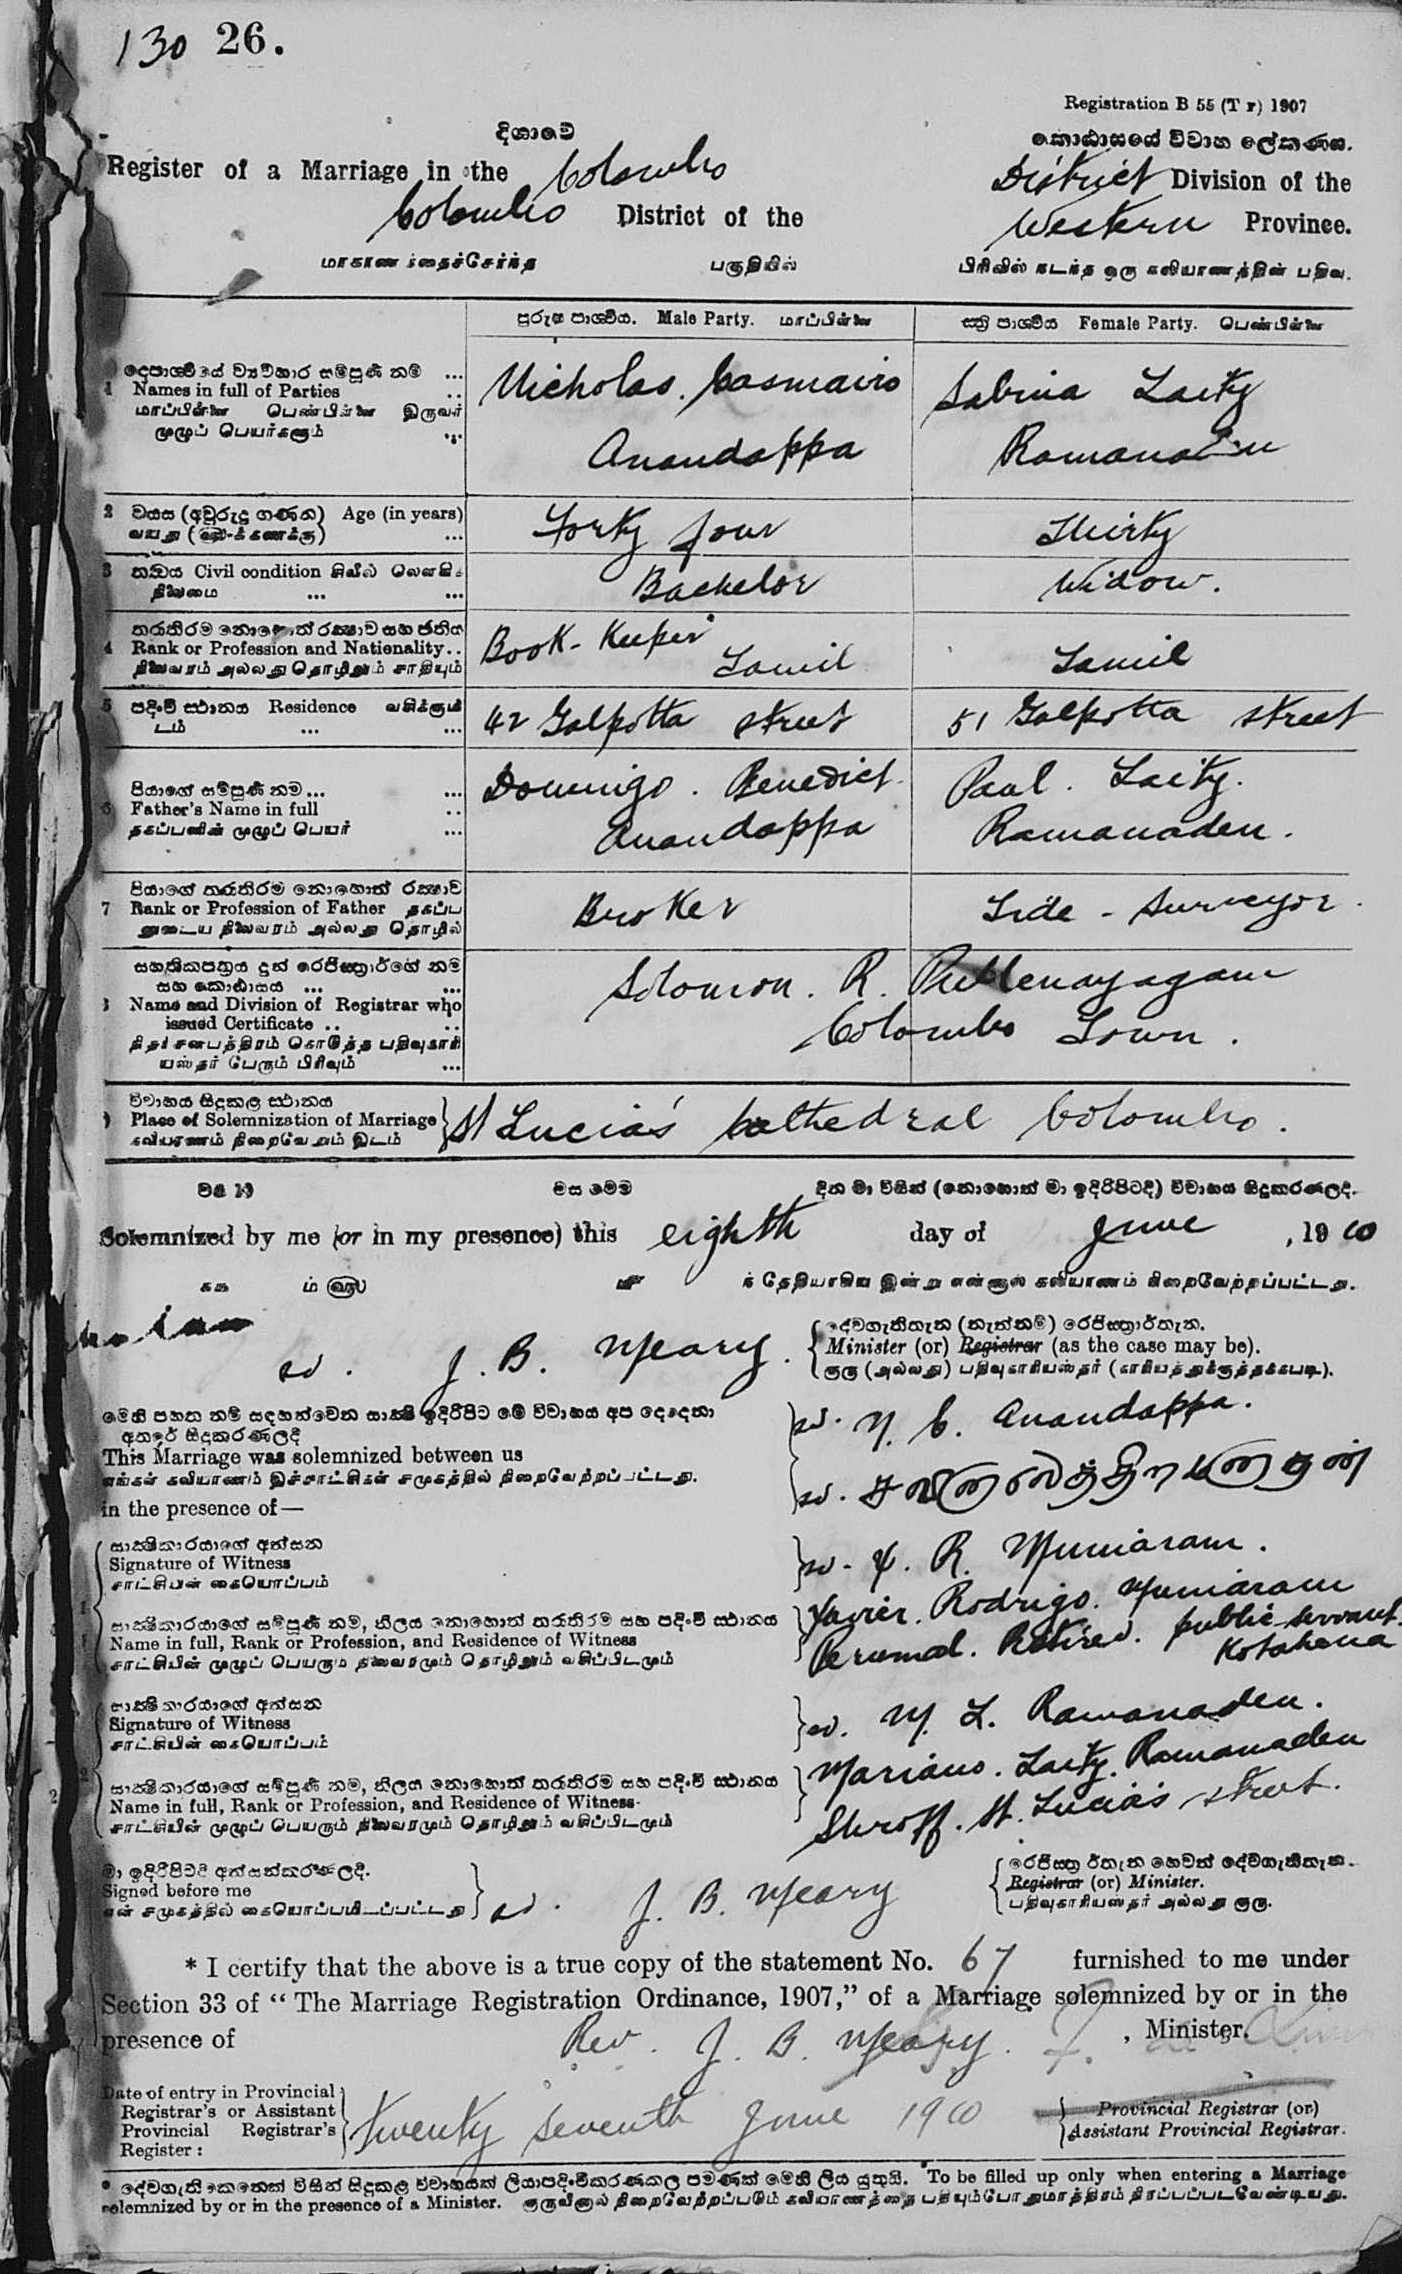 130 26.
Registration B 55 (T r) 1907
දිශාවේ
කොඨාසයේ විවාහ ලේකණය.
Register of a Marriage in the Colombo District Division of the
Colombo District of the Western Province.
மாகாணத்தைச்சேர்ந்த பகுதியில் பிரிவில் நடந்த ஒரு கலியாணத்தின் பதிவு.
පුරුෂ පාශ්වීය. Male Party. மாப்பிள்ளை
ස්ත්‍රී පාශ්වීය Female Party. பெண்பிள்ளை
1 දෙපාශ්වීයේ ව්‍යවහාර සම්පූණී නම් ...
Names in full of Parties ..
மாப்பிள்ளை பெண்பிள்ளை இருவர்
முழுப் பெயர்களும் ...
Nicholas. Casmairo
Anandappa
Sabina Laity
Ramanaden
2 වයස (අවුරුදු ගණන) Age (in years)
வயது ...
Forty four
Thirty
3 තත්‍වය Civil condition சிவில் லௌகிக
நிலைமை ... ...
Bachelor
Widow.
4 තරාතිරම නොහොත් රක්‍ෂාව සහ ජාතිය
Rank or Profession and Nationality..
நிலைவரம் அல்லது தொழிலும் சாதியும்
Book-Keeper Tamil
Tamil
5 පදිංචි ස්ථානය Residence வசிக்குமி
டம் ... ...
42 Galpotta street
51 Galpotta street
6 පියාගේ සම්පූණී නම... ...
Father's Name in full ..
தகப்பனின் முழுப் பெயர் ...
Domingo. Benedict
Anandappa
Paul. Laity.
Ramanaden.
7 පියාගේ තරාතිරම නොහොත් රක්‍ෂාව
Rank or Profession of Father தகப்ப
னுடைய நிலைவரம் அல்லது தொழில்
Broker
Tide - Surveyor.
සහතිකපත්‍රය දුන් රෙජිස්ත්‍රාර්ගේ නම
සහ කොඨාසය ... ...
Name and Division of Registrar who
issued Certificate .. ..
அத்தாட்சிபத்திரம் கொடுத்த பதிவுகாரி
யஸ்தர் பேரும் பிரிவும் ...
Solomon. R. Puttenayagam
Colombo Town.
විවාහය සිදුකල ස්ථානය
Place of Solemnization of Marriage
கலியாணம் நிறைவேறும் இடம்
St Lucia's Cathedral Colombo.
වර්‍ෂ 19 මස මෙම දින මා විසින් (නොහොත් මා ඉදිරිපිටදී) විවාහය සිදුකරණලදි.
Solemnized by me (or in my presence) this eighth day of June, 1910
ந் தேதியாகிய இன்று என்னால் கலியாணம் நிறைவேற்றப்பட்டது.
sd. J. B. Meary.
දේවගැතිතැන (නැත්නම්) රෙජිස්ත්‍රාර්තැන.
Minister (or) Registrar (as the case may be).
குரு (அல்லது) பதிவுகாரியஸ்தர் (காரியத்துக்குத்தக்கபடி).
මෙහි පහත නම් සඳහන්වෙන සාක්‍ෂි ඉදිරිපිට මේ විවාහය අප දෙදෙනා
අතරේ සිදුකරණලදි
This Marriage was solemnized between us
எங்கள் கலியாணம் இச்சாட்சிகள் சமுகத்தில் நிறைவேற்றப்பட்டது.
in the presence of—
sd. N. C. Anandappa.
sd.
සාක්‍ෂිකාරයාගේ අත්සන
Signature of Witness
சாட்சியின் கையொப்பம்
sd. X. R. Muniaram.
සාක්‍ෂිකාරයාගේ සම්පූණී නම, නිලය නොහොත් තරාතිරම සහ පදිංචි ස්ථානය
Name in full, Rank or Profession, and Residence of Witness
சாட்சியின் முழுப் பெயரும் நிலைவரமும் தொழிலும் வசிப்பிடமும்
Xavier. Rodrigo. Muniaram
Perumal. Retired. public servant.
Kotahena
සාක්‍ෂිකාරයාගේ අත්සන
Signature of Witness
சாட்சியின் கையொப்பம்
sd. M. L. Ramanaden.
2 සාක්‍ෂිකාරයාගේ සම්පූණී නම, නිලය නොහොත් තරාතිරම සහ පදිංචි ස්ථානය
Name in full, Rank or Profession, and Residence of Witness
சாட்சியின் முழுப் பெயரும் நிலைவரமும் தொழிலும் வசிப்பிடமும்
Mariano. Laity. Ramanaden
Shroff. St. Lucia's street.
මා ඉදිරිපිටදී අත්සන්කරණලදි.
Signed before me
என் சமுகத்தில் கையொப்பமிடப்பட்டது
sd. J. B. Meary
රෙජිස්ත්‍රාර්තැන හෙවත් දේවගැතිතැන.
Registrar (or) Minister.
பதிவுகாரியஸ்தர் அல்லது குரு.
* I certify that the above is a true copy of the statement No. 67 furnished to me under
Section 33 of "The Marriage Registration Ordinance, 1907," of a Marriage solemnized by or in the
presence of Rev. J. B. Meary. , Minister.
Date of entry in Provincial
Registrar's or Assistant
Provincial Registrar's
Register :
Twenty seventh June 1910
Provincial Registrar (or)
Assistant Provincial Registrar.
* දේවගැති කෙනෙක් විසින් සිදුකළ විවාහයක් ලියාපදිංචිකරණකල පමණක් මෙහි ලිය යුතුයි. *To be filled up only when entering a Marriage
solemnized by or in the presence of a Minister. குருவினால் நிறைவேற்றப்படும் கலியாணத்தை பதியும்போதுமாத்திரம் நிரப்பப்படவேண்டியது.